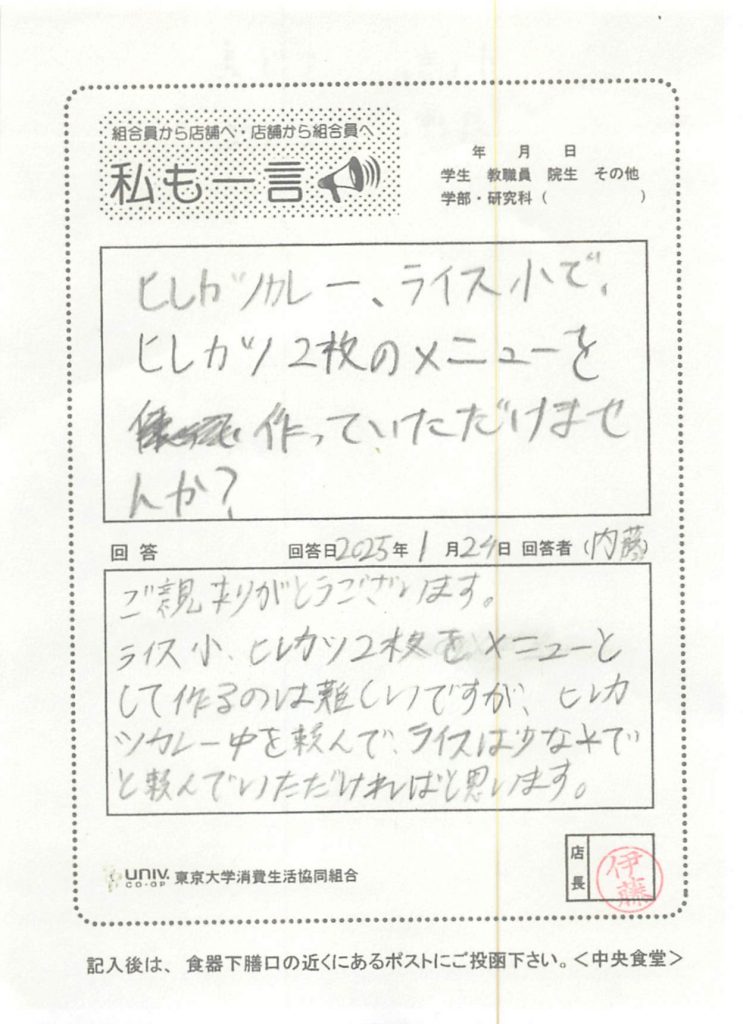 組合員から店舗へ・店舗から組合員へ
私も一言
年 月 日
学生 教職員 院生 その他
学部・研究科（ ）
ヒレカツカレー、ライス小で、
ヒレカツ2枚のメニューを
作っていただけませ
んか？
回答 回答日2025年1月24日 回答者（内藤）
ご意見ありがとうございます。
ライス小、ヒレカツ2枚をメニューと
して作るのは難しいですが、ヒレカ
ツカレー中を頼んで、ライスは少なめで
と頼んでいただければと思います。
UNIV.
CO-OP
東京大学消費生活協同組合
店長
伊藤
記入後は、食器下膳口の近くにあるポストにご投函下さい。＜中央食堂＞